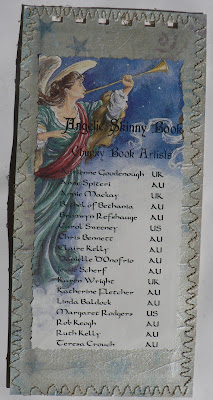 Angelic Skinny Book
Chunky Book Artists
Goodenough UK
Spiteri AU
Annie Mackay UK
Bethel of Bethania AU
Bronwyn Refshauge AU
Carol Sweeney US
Chris Bennett AU
Claire Kelly AU
Danielle D'Onofrio AU
Scherf AU
Karen Wright UK
Katherine Fletcher AU
Linda Baldock AU
Margaret Rodgers US
Rob Keogh AU
Ruth Kelly AU
Teresa Crouch AU